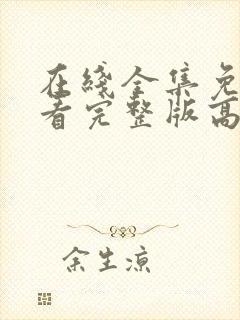 在线全集免
看完整版高
余生凉